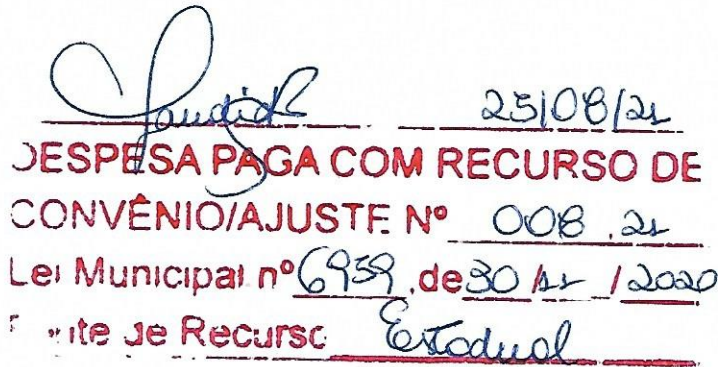 25/08/21
DESPESA PAGA COM RECURSO DE
CONVÊNIO/AJUSTE Nº 008.21
Lei Municipal nº 6959, de 30 / / 2020
de Recurso Estadual